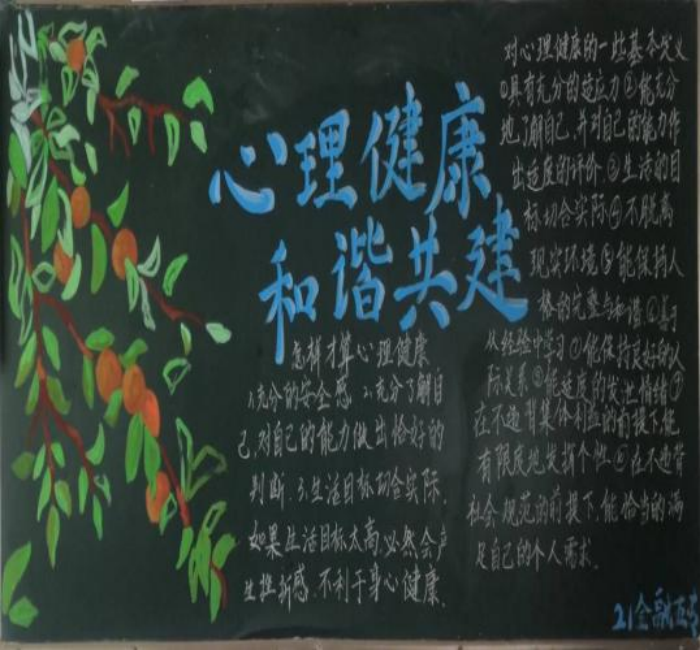 心理健康
和谐共建
怎样才算心理健康
1.充分的安全感 2.充分了解自
己,对自己的能力做出恰好的
判断 3.生活目标切合实际,
如果生活目标太高,必然会产
生挫折感,不利于身心健康.
对心理健康的一些基本定义
①具有充分的适应力②能充分
地了解自己,并对自己的能力作
出适度的评价③生活的目
标切合实际④不脱离
现实环境⑤能保持人
格的完整与和谐⑥善于
从经验中学习⑦能保持良好的人
际关系⑧能适度的发出情绪⑨
在不违背集体利益的前提下,能
有限度地发挥个性⑩在不违背
社会规范的前提下,能恰当的满
足自己的个人需求.
21金融